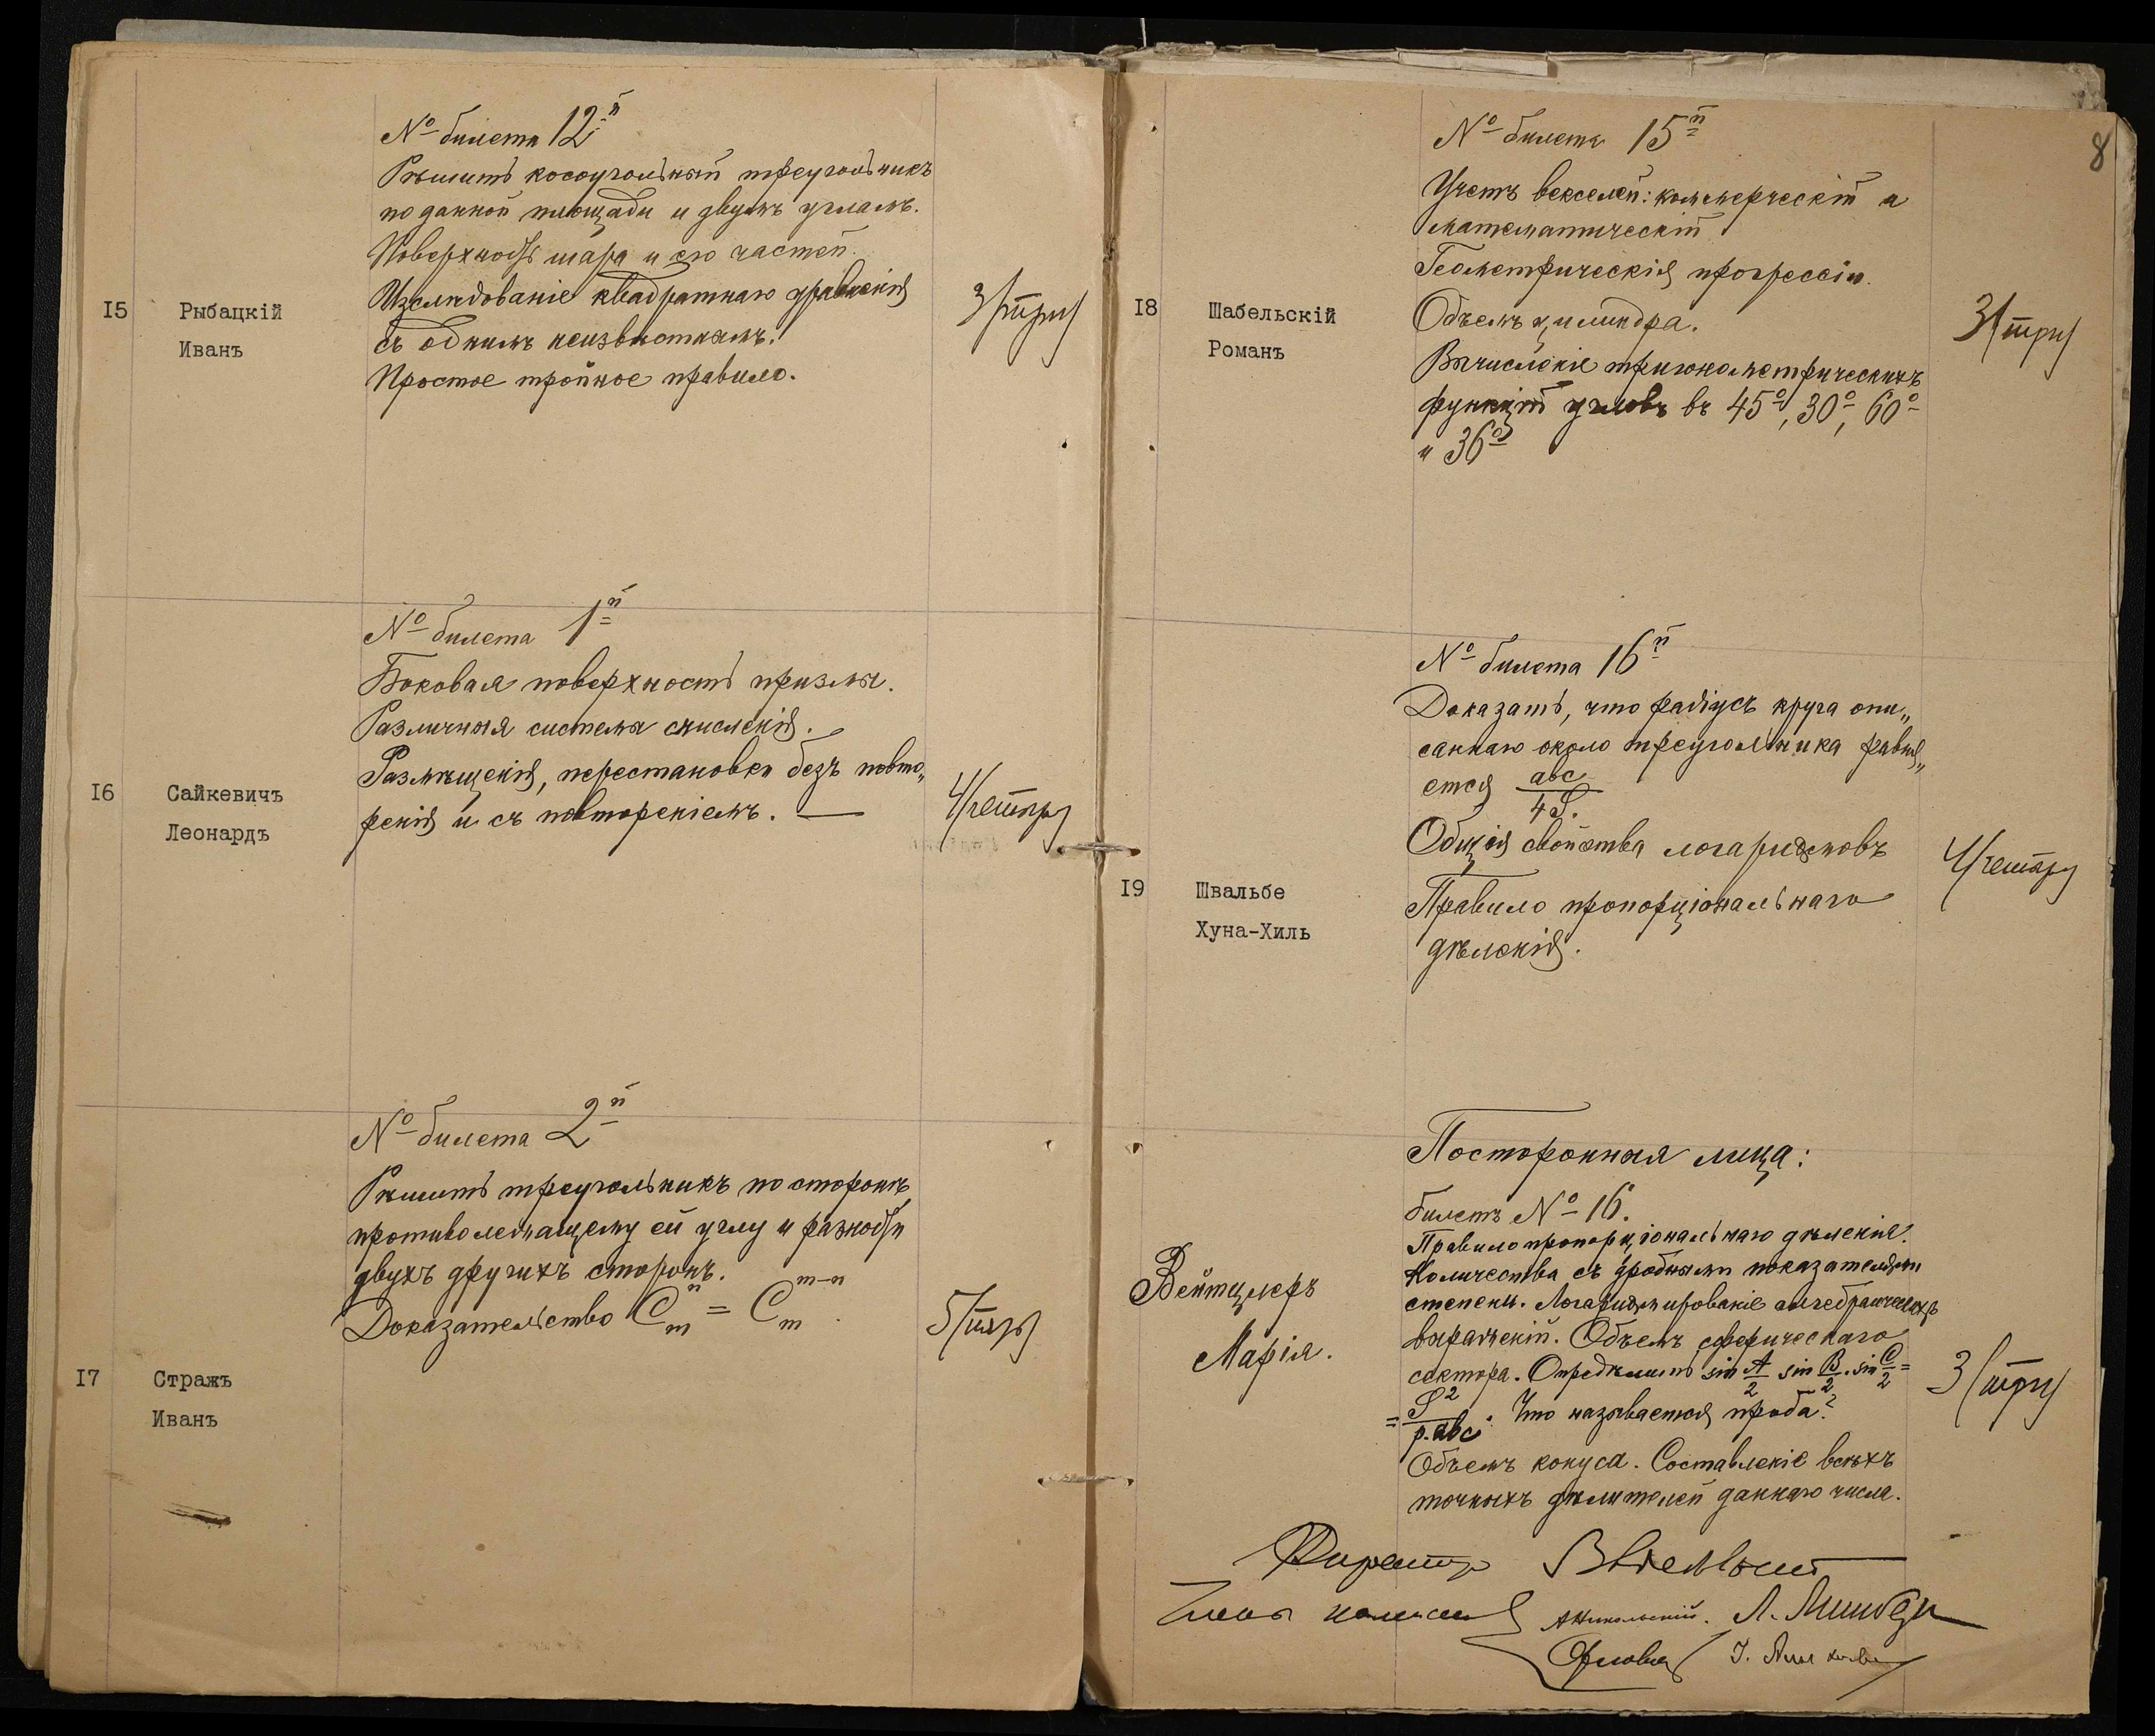 № билета 12й
Рѣшить косоугольный треугольникъ
по данной площади и двумъ угламъ.
Поверхность шара и его частей.
Изслѣдованіе квадратнаго уравненія
съ однимъ неизвѣстнымъ.
Простое тройное правило.
15 Рыбацкій
Иванъ
3/три/
№ билета 1й
Боковая поверхность призмы.
Различныя системы счисленія.
Размѣщенія, перестановки безъ повто„
ренія и съ повтореніемъ. —
16 Сайкевичъ
Леонардъ
4/четыре/
№ билета 2й
Рѣшить треугольникъ по сторонѣ,
противолежащему ей углу и разности
двухъ другихъ сторонъ.
Доказательство C_m^n = C_m^{m-n}.
17 Стражъ
Иванъ
5/пять/
8
№ билета 15й
Учетъ векселей: коммерческій и
математическій
Геометрическія прогрессіи.
Объемъ цилиндра.
Вычисленіе тригонометрическихъ
функцій угловъ въ 45°, 30°, 60°
и 36°
18 Шабельскій
Романъ
3/три/
№ билета 16й
Доказать, что радіусъ круга опи„
саннаго около треугольника равня„
ется abc/4S.
Общія свойства логариѳмовъ
Правило пропорціональнаго
дѣленія.
19 Швальбе
Хуна-Хиль
4/четыре/
Посторонныя лица:
билетъ № 16.
Правило пропорціональнаго дѣленія.
Количества съ дробными показателями
степени. Логариѳмированіе алгебраическихъ
выраженій. Объемъ сферическаго
сектора. Опредѣлить sin A/2 sin B/2 . sin C/2 =
= S²/p.abc. Что называется проба?
Объемъ конуса. Составленіе всѣхъ
точныхъ дѣлителей даннаго числа.
Вейтцлеръ
Марія.
3/три/
Директоръ
Члены комиссіи
А Никольскій.
Орловъ